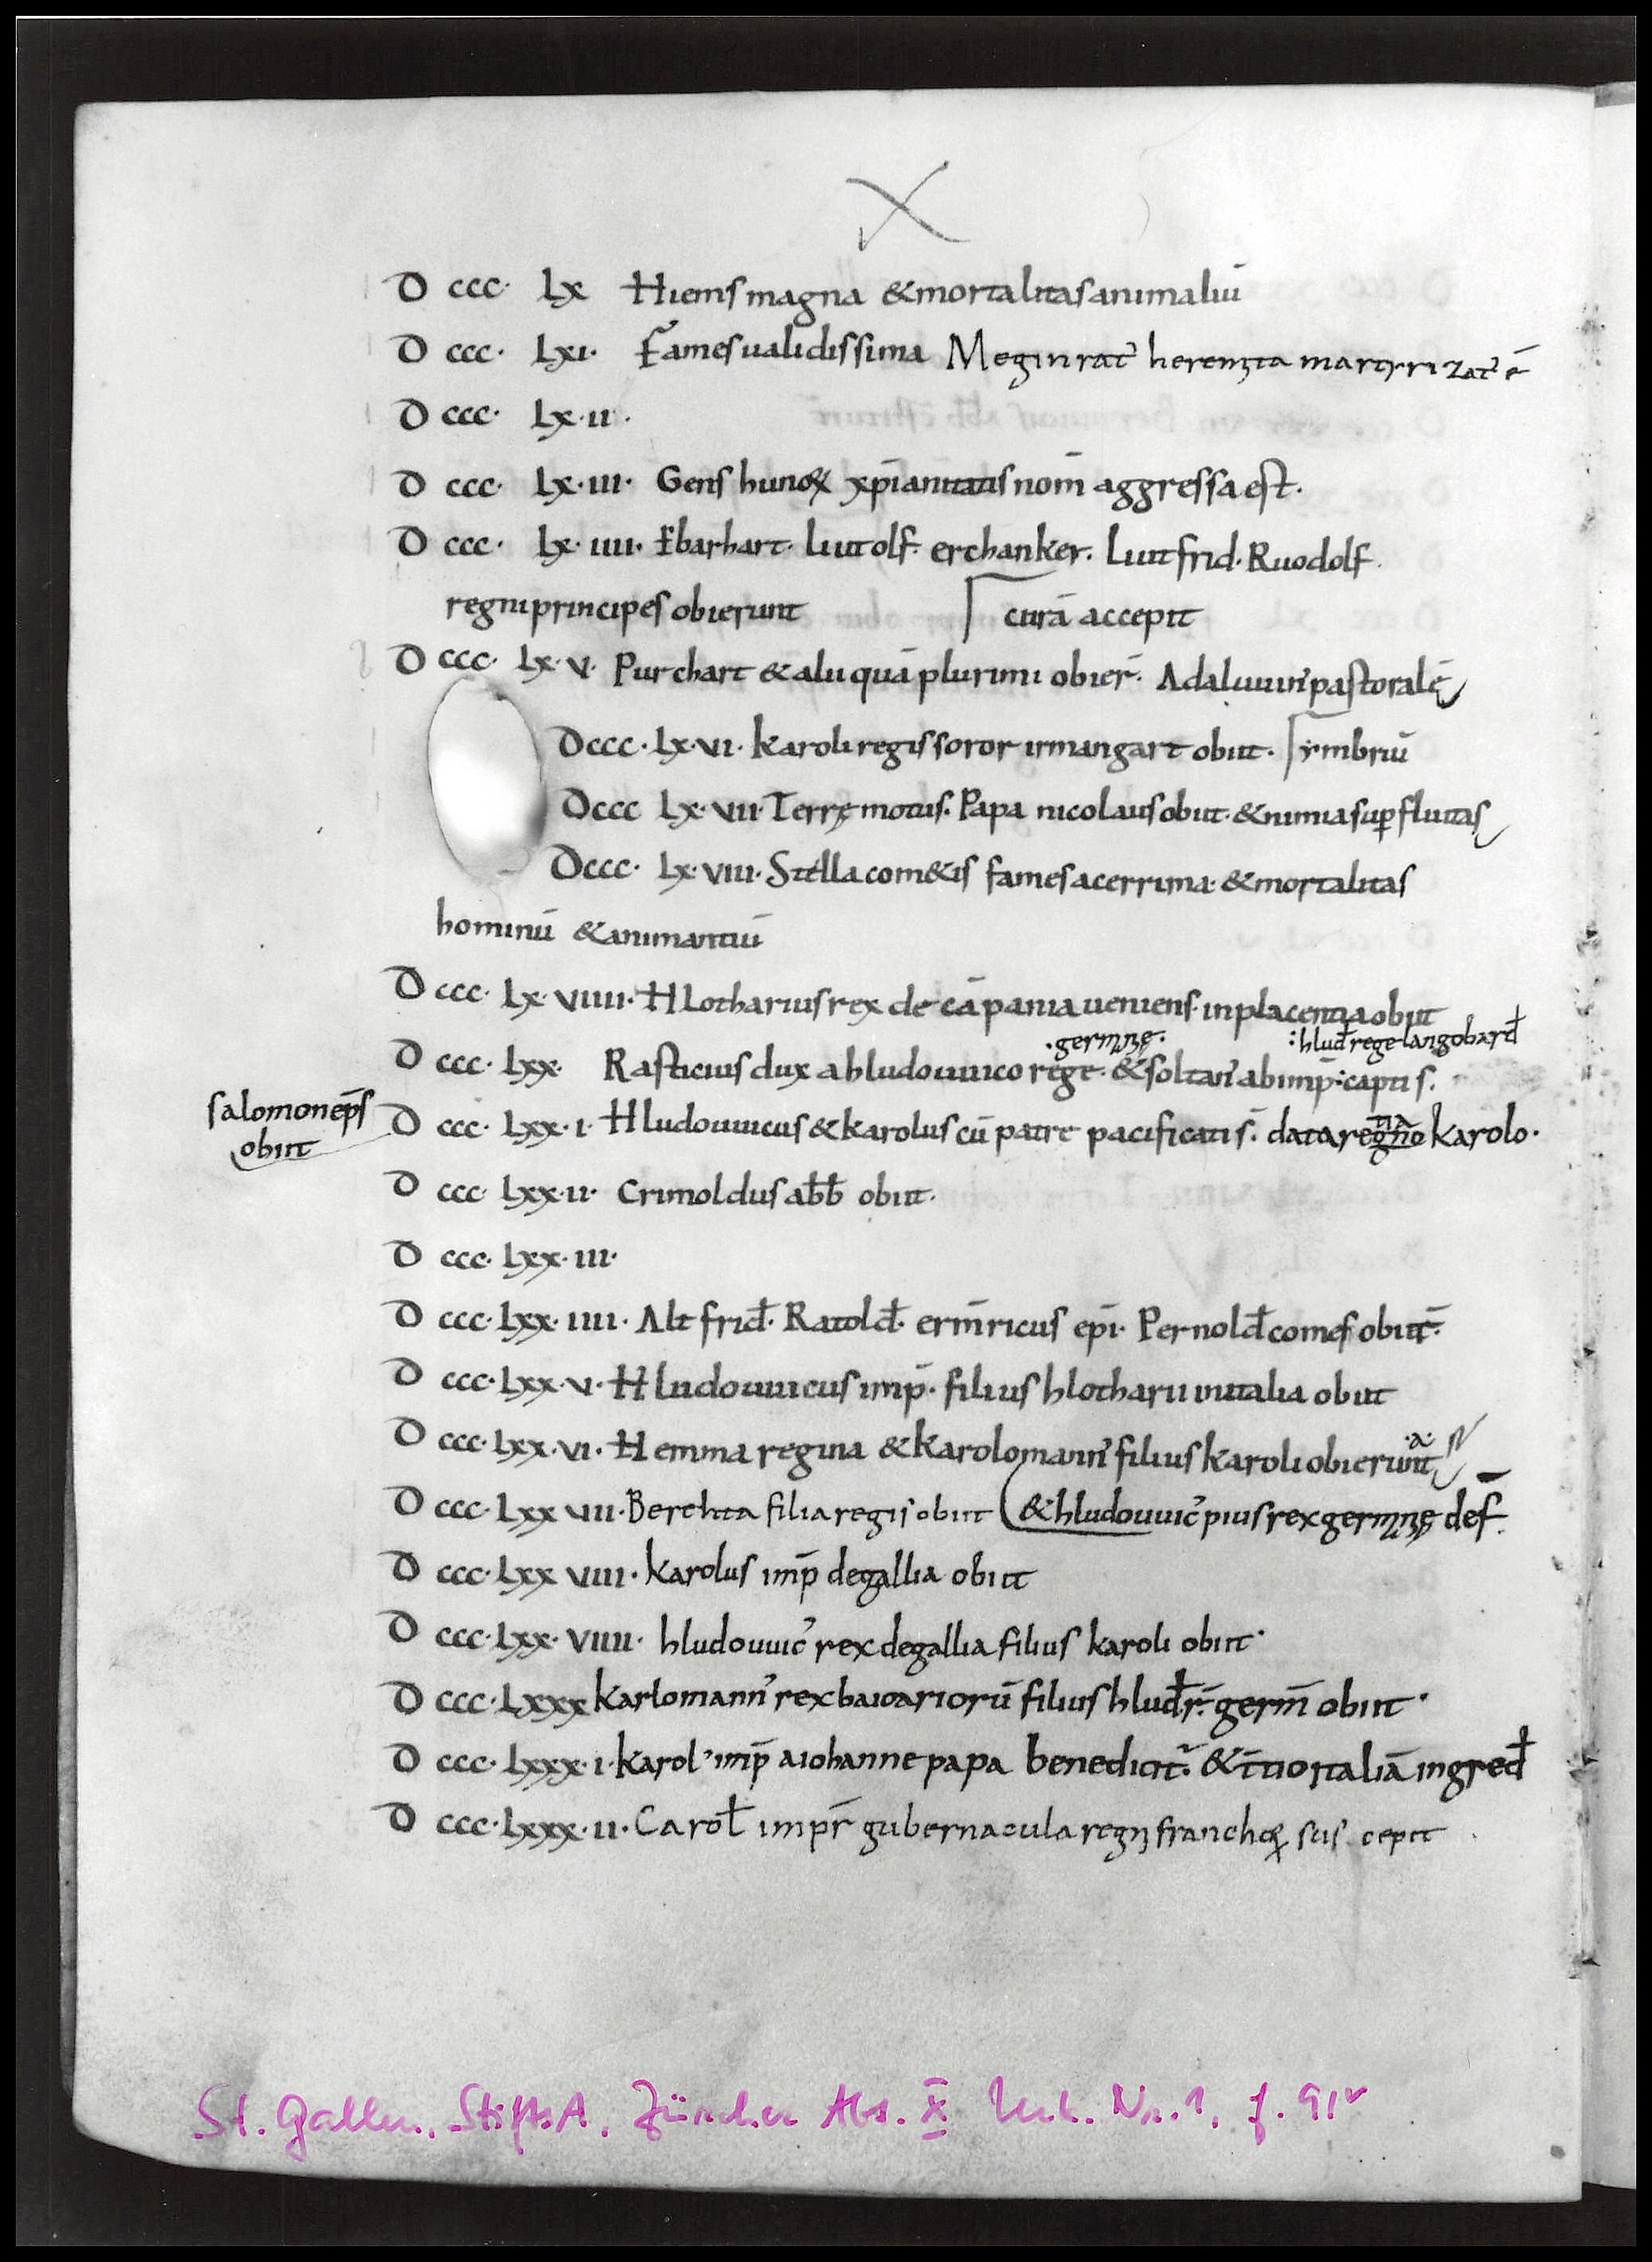 D ccc· Lx Hiems magna & mortalitas animaliū
D ccc· Lxı· Fames ualidissima Meginrat᾿ heremita martyrizat᾿ ē
D ccc· Lx·ıı·
D ccc· Lx·ııı· Gens hunoꝝ xp̄ianitatis nom̄ aggressa est·
D ccc· Lx·ıııı· Ebarhart· liutolf· erchanker· Liutfrid· Ruodolf·
regni principes obierunt ⌈ curā accepit
D ccc· Lx·v· Purchart & alii quā plurimi obier̄· Adaluuin᾿ pastoralē
Dccc·Lx·vı· karoli regis soror irmangart obiit· ⌈ ymbriū
Dccc Lx·vıı· Terrę motus· Papa nicolaus obiit· & nimia suꝑfluitas
Dccc· Lx·vııı· Stella com&is fames acerrima· & mortalitas
hominū & animantiū
D ccc· Lx·vıııı· HLotharius rex de cāpania ueniens· in placentia obiit
·germanię· :hlud̄ rege langobard̄
D ccc· Lxx· Rasticius dux a hludouuico rege· & soltan᾿ ab imp̄:captis·
salomon ep̄s
obiit
D ccc· Lxx·ı· Hludouuicus & karolus cū patre pacificati s̄· data regno karolo·
D ccc· Lxx·ıı· Crimoldus abb̄ obiit·
D ccc· Lxx·ııı·
D ccc· Lxx·ıııı· Altfrid̄· Ratold̄· erm̄ricus ep̄i· Pernold̄ comes obiit̄·
D ccc· Lxx·v· Hludouuicus imp̄· filius hlotharii in italia obiit
·a·
D ccc· Lxx·vı· Hemma regina & karolomann᾿ filius karoli obierunt
D ccc· Lxx vıı· Berehta filia regis obiit (& hludouuic᾿ pius rex germanię def̄·
D ccc· Lxx vııı· karolus imp̄ de gallia obiit
D ccc· Lxx· vıııı· hludouuic᾿ rex de gallia filius karoli obiit·
D ccc· Lxxx karlomann᾿ rex baioariorū filius hlud̄ r̄· germ̄ obiit·
D ccc· Lxxx·ı· karol᾿ imp̄ a iohanne papa benedicit᾿· & t̄tio italiā ingred̄
D ccc· Lxxx·ıı· Carol̄ impr̄ gubernacula regni franchoꝝ suscepit
St. Gallen, StiftsA, Zürcher Abt. X Urk. Nr. 1, f. 91v